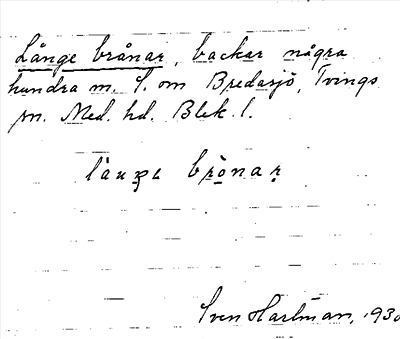 Långe brånar, backar några
hundra m. S. om Bredasjö, Tvings
sn. Med. hd. Blek. l.
brònar
Sven Hartman, 1930